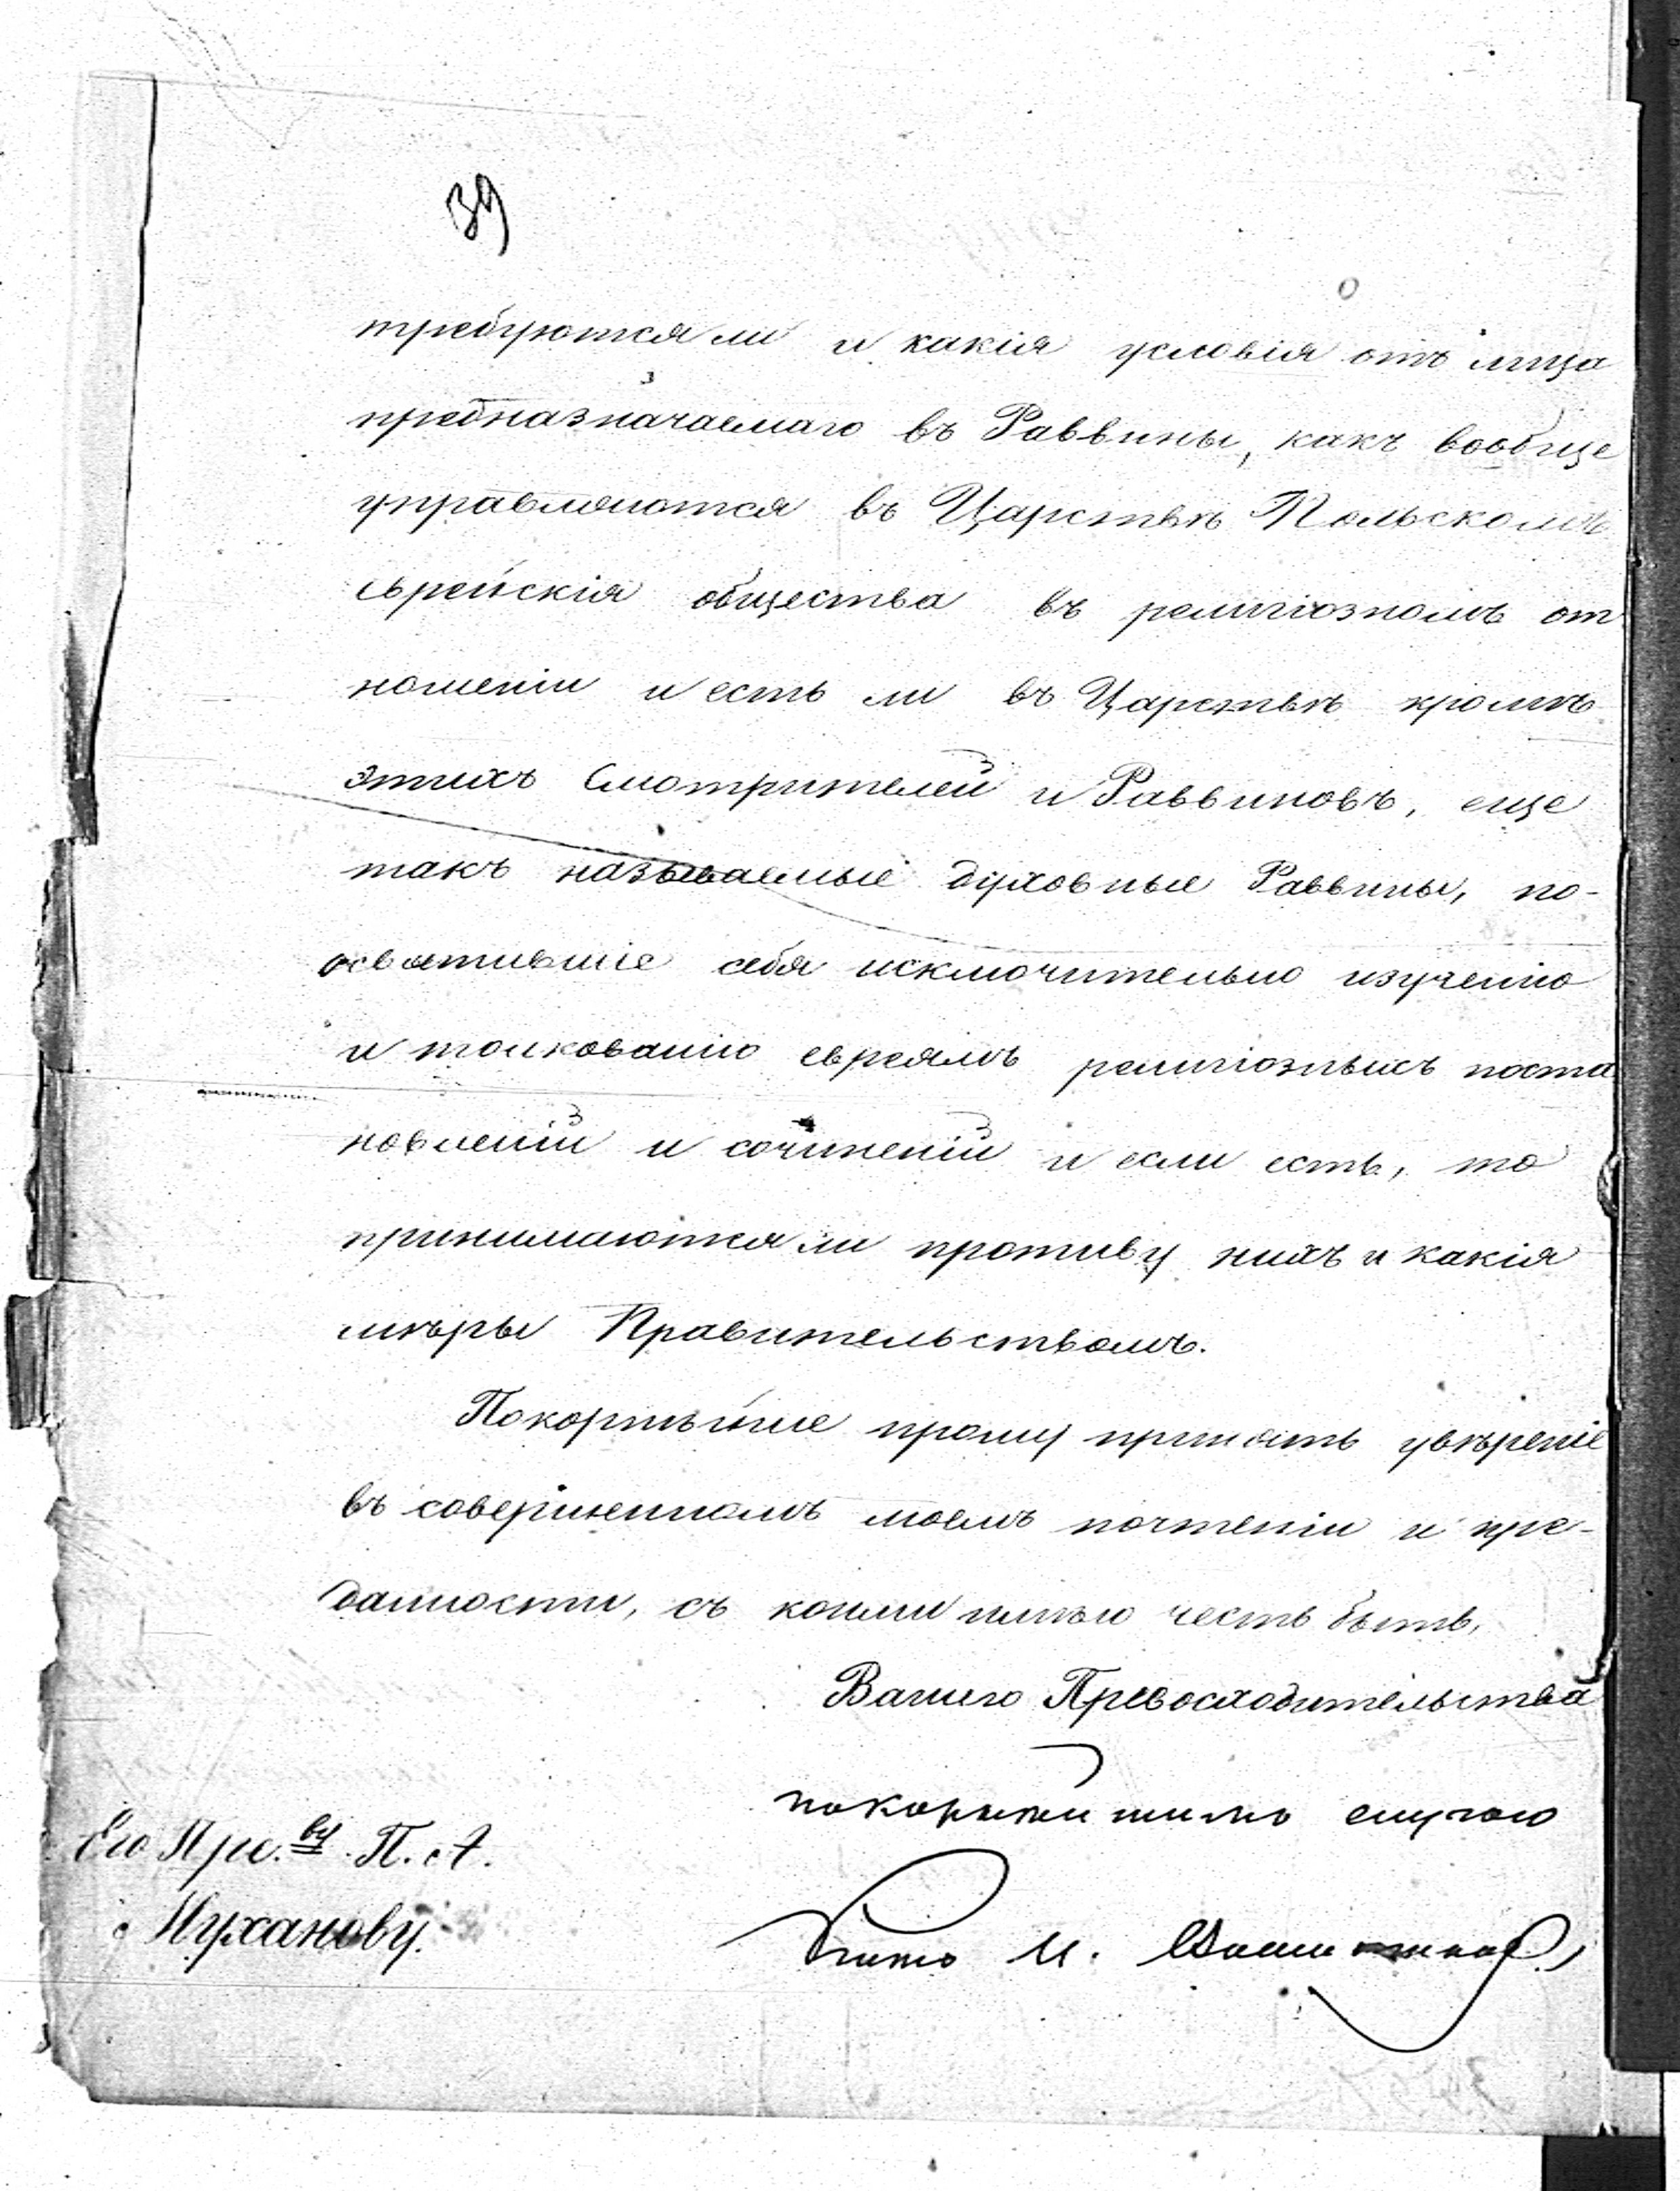 39
требуются ли и какія условія отъ лица
предназначаемаго въ Раввины, какъ вообще
управляются въ Царствѣ Польскомъ
еврейскія общества въ религіозномъ от
ношеніи и есть ли въ Царствѣ кромѣ
этихъ Смотрителей и Раввиновъ, еще
такъ называемые духовные Раввины, по-
освятившіе себя исключительно изученію
и толкованію евреямъ религіозныхъ поста
новленій и сочиненій и если есть, то
принимаются ли противу нихъ и какія
мѣры Правительствомъ.
Покорнѣйше прошу принять увѣреніе
въ совершенномъ моемъ почтеніи и пре-
данности, съ коими имѣю честь быть,
Вашего Превосходительства
покорнѣйшимъ слугою
Его Пре.ву П. А.
Муханову.